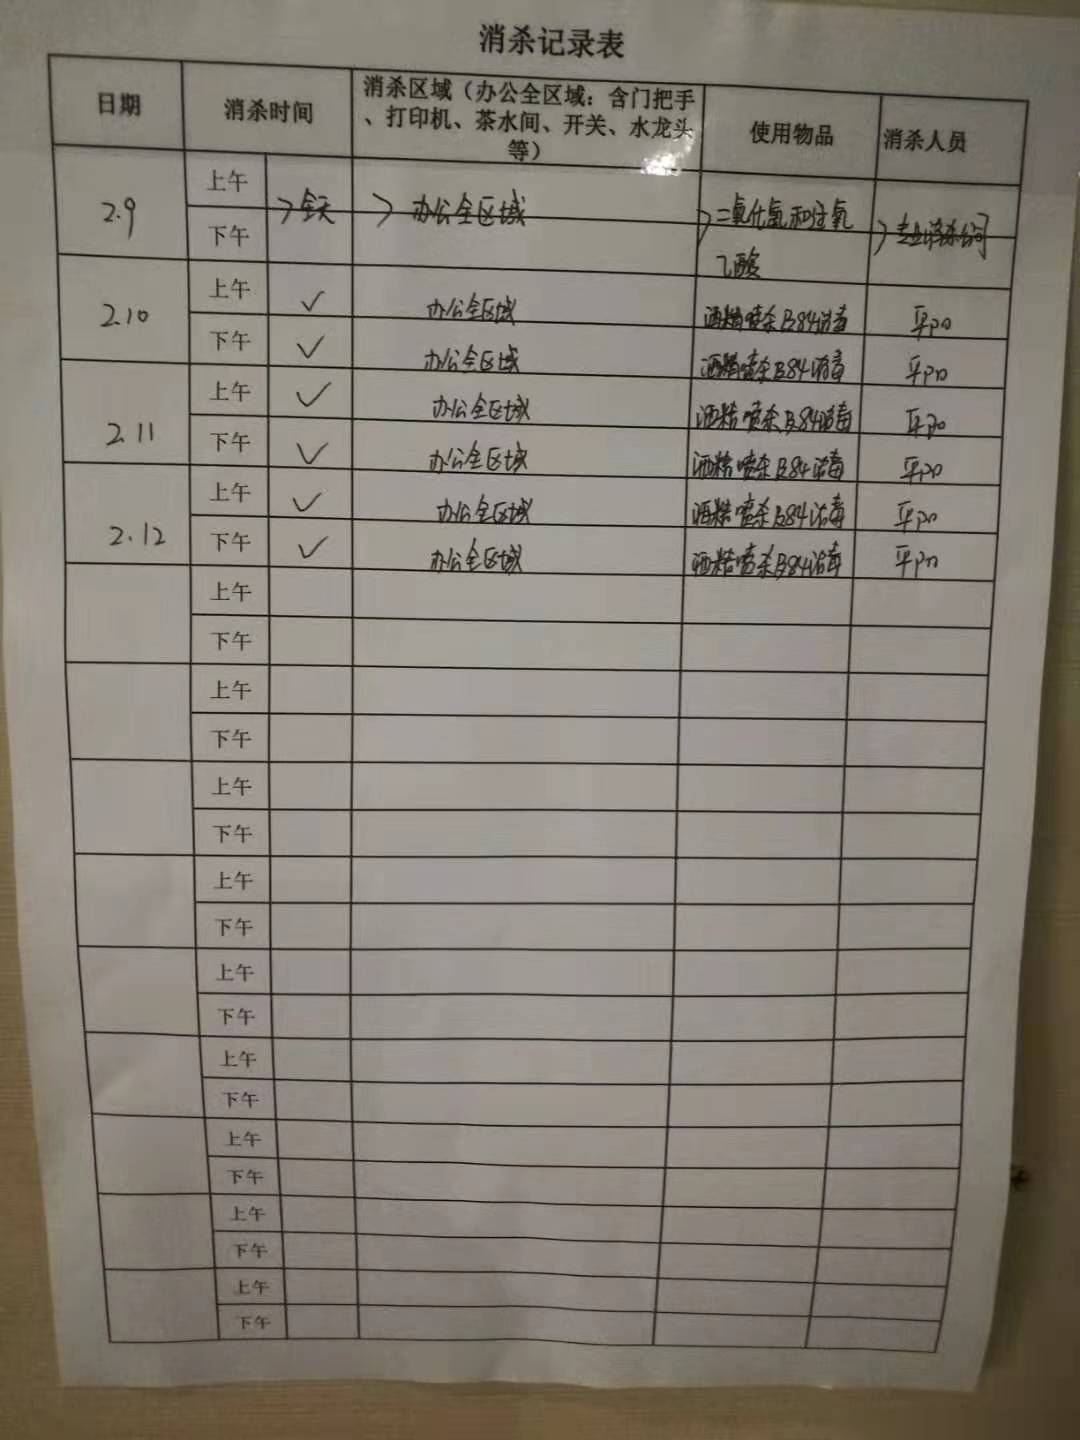 消杀记录表
日期 消杀时间 消杀区域（办公全区域：含门把手、打印机、茶水间、开关、水龙头等） 使用物品 消杀人员
2.9 上午 下午 >全天 >办公全区域 >二氧化氯和过氧乙酸 >专业消杀公司
2.10 上午 ✓ 办公全区域 酒精喷杀及84消毒
下午 ✓ 办公全区域 酒精喷杀及84消毒
2.11 上午 ✓ 办公全区域 酒精喷杀及84消毒
下午 ✓ 办公全区域 酒精喷杀及84消毒
2.12 上午 ✓ 办公全区域 酒精喷杀及84消毒
下午 ✓ 办公全区域 酒精喷杀及84消毒
上午
下午
上午
下午
上午
下午
上午
下午
上午
下午
上午
下午
上午
下午
上午
下午
上午
下午